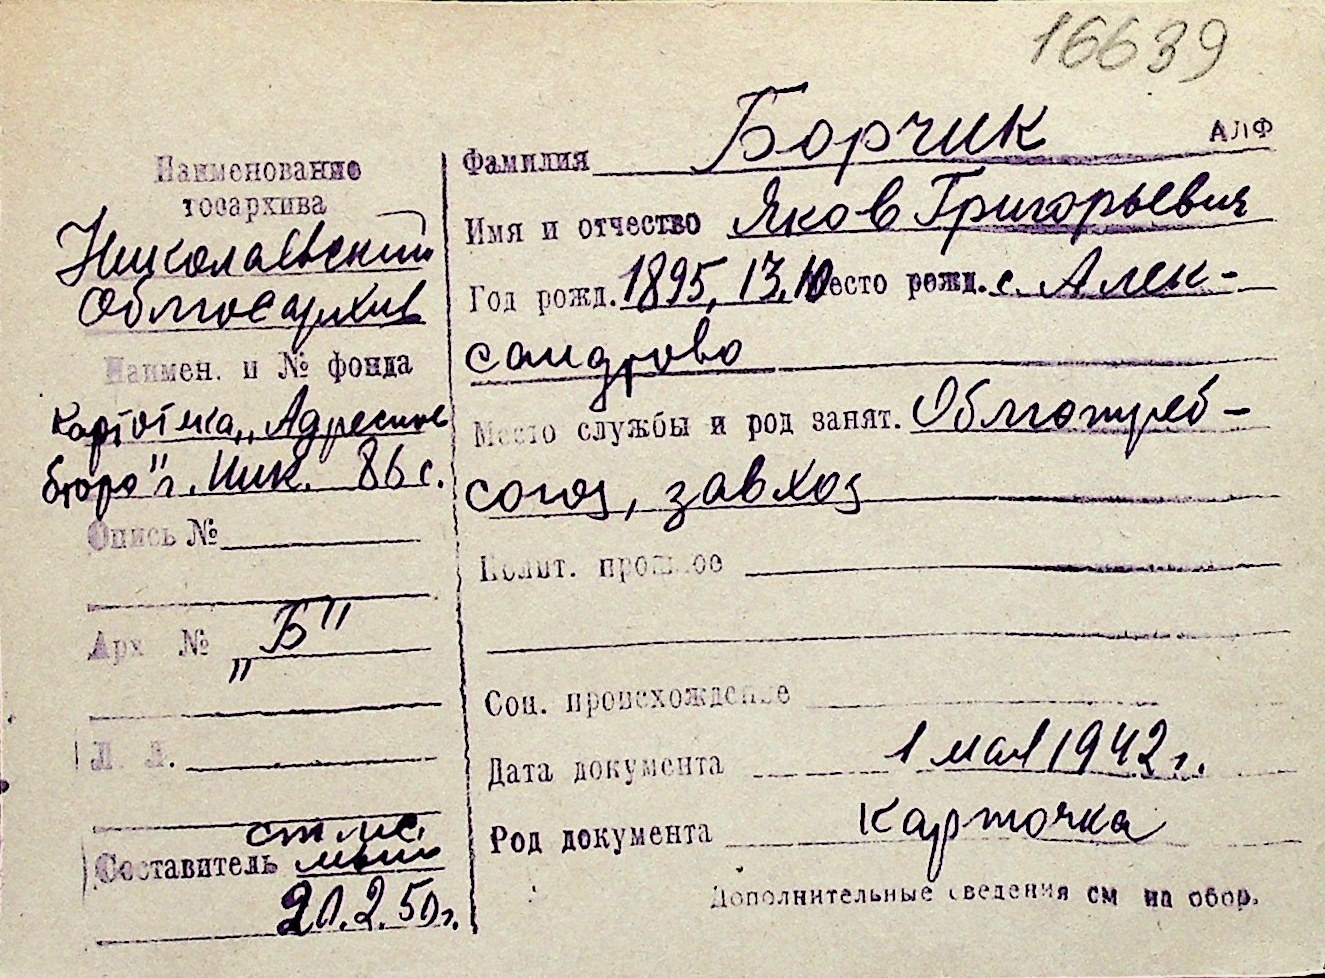 16639
АЛФ
Наименование
госархива
Николаевский
Облгосархив
Наимен. и № фонда
Картотека „Адресное
бюро" г. Ник. 86 с.
Опись №
Арх №
„Б"
Л. Л.
Составитель
20.2.50г.
Фамилия Борчик
Имя и отчество Яков Григорьевич
Год рожд. 1895, 13.10 Место рожд. с. Алек-
сандрово
Место службы и род занят. Облпотреб-
союз, завхоз
Полит. прошлое
Соц. происхождение
Дата документа 1 мая 1942 г.
Род документа карточка
Дополнительные сведения см на обор.